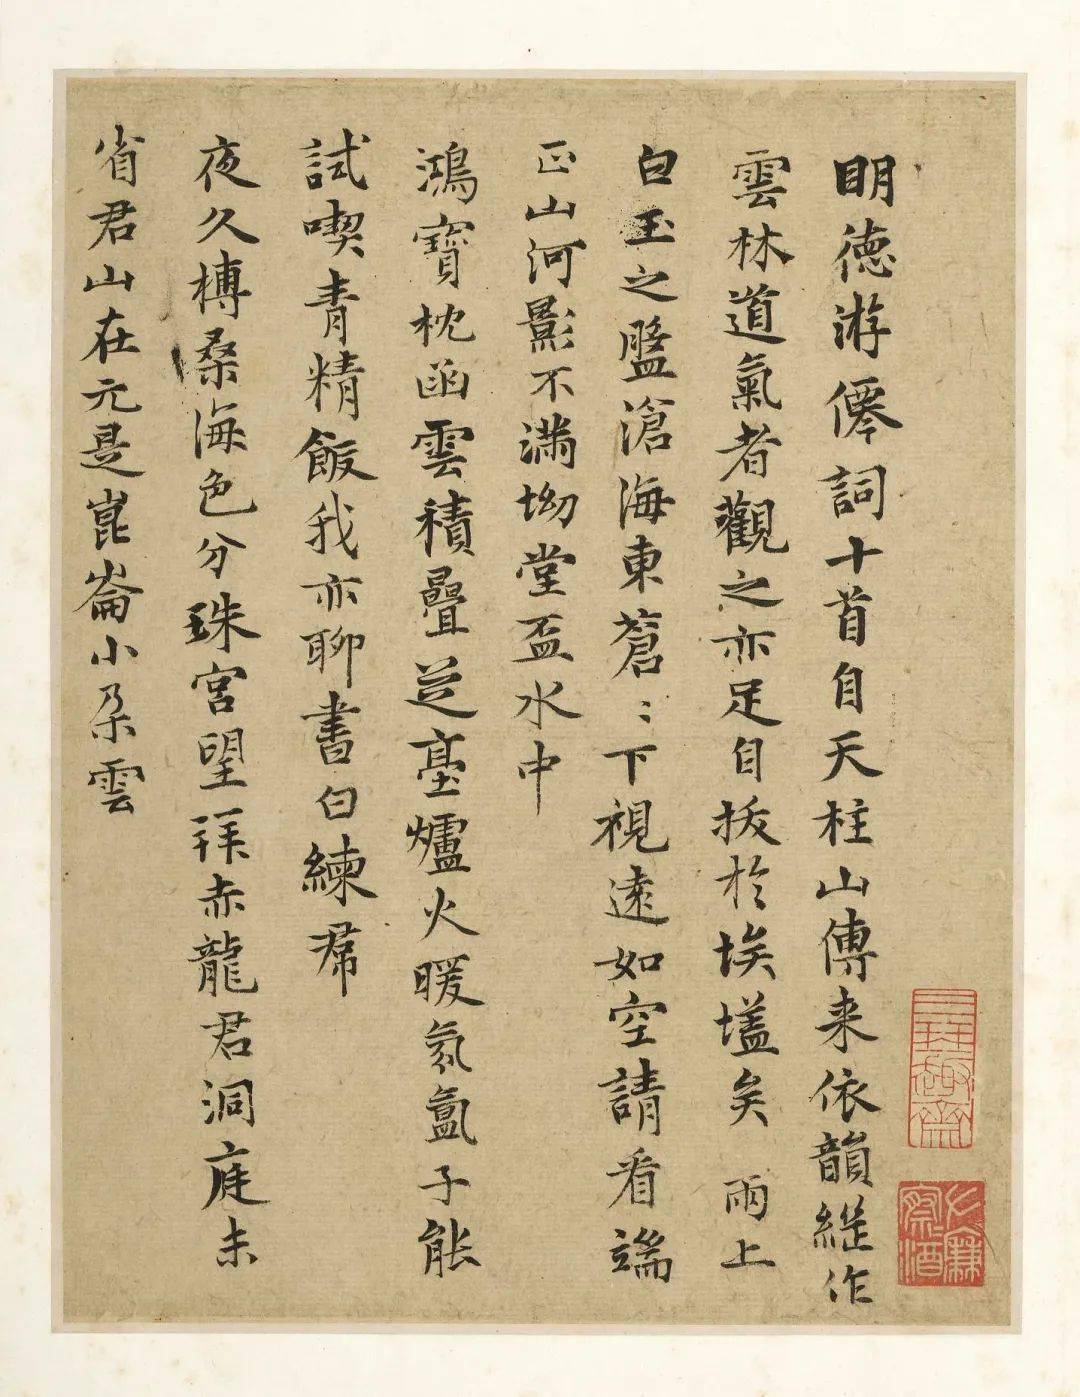 明德游僊詞十首自天柱山傳来依韻継作
雲林道氣者觀之亦足自拔於埃壒矣 雨上
白玉之盤滄海東蒼〻下視遠如空請看端
正山河影不滿坳堂盃水中
鴻寶枕函雲積疊芝臺爐火暖氤氳子能
試喫青精飯我亦聊書白練帬
夜久榑桒海色分珠宮望拜赤龍君洞庭未
省君山在元是崑崙小朶雲